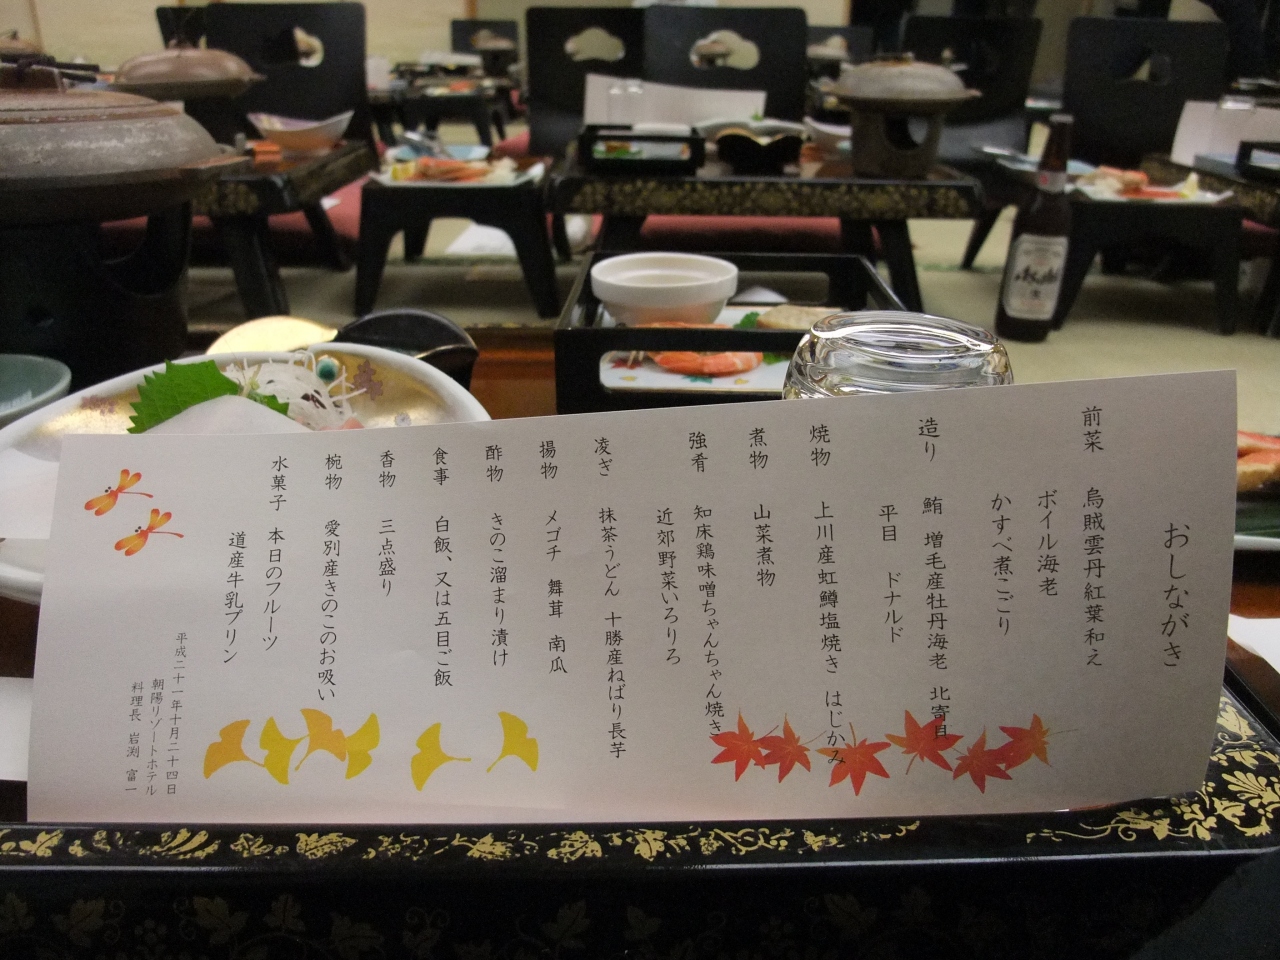 おしながき
前菜　烏賊雲丹紅葉和え
ボイル海老
かすべ煮こごり
造り　鮪　増毛産牡丹海老　北寄貝
平目　ドナルド
焼物　上川産虹鱒塩焼き　はじかみ
煮物　山菜煮物
強肴　知床鶏味噌ちゃんちゃん焼き
近郊野菜いろりろ
凌ぎ　抹茶うどん　十勝産ねばり長芋
揚物　メゴチ　舞茸　南瓜
酢物　きのこ溜まり漬け
食事　白飯、又は五目ご飯
香物　三点盛り
椀物　愛別産きのこのお吸い
水菓子　本日のフルーツ
道産牛乳プリン
平成二十一年十月二十四日
朝陽リゾートホテル
料理長　岩渕　富一